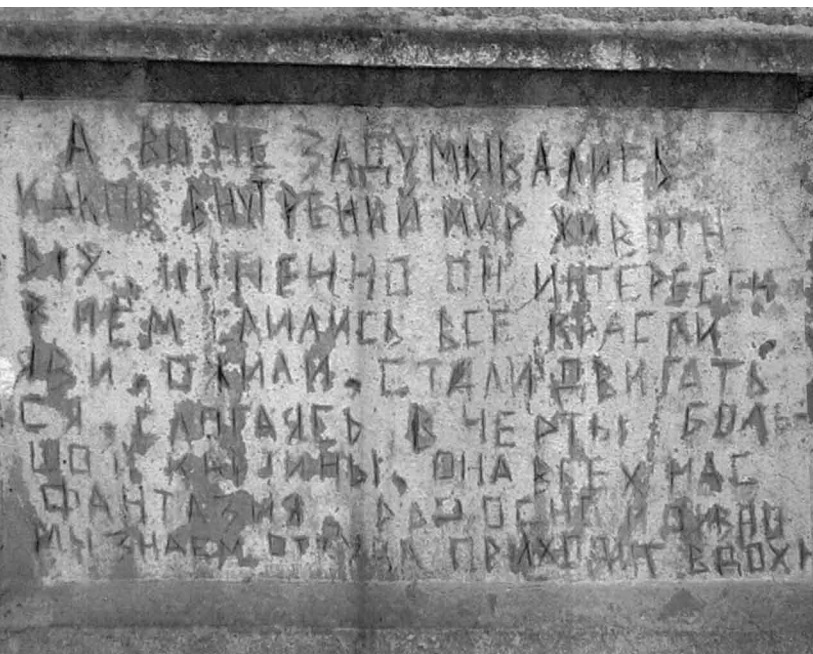 А ВЫ НЕ ЗАДУМЫВАЛИСЬ
КАКОВ ВНУТРЕНИЙ МИР ЖИВОТН
ЫХ. ИМЕННО ОН ИНТЕРЕСЕН
В НЕМ СЛИЛИСЬ ВСЕ КРАСКИ
ЯВИ, ОЖИЛИ, СТАЛИ ДВИГАТЬ
СЯ, СЛАГАЯСЬ В ЧЕРТЫ БОЛЬ-
ШОЙ КАРТИНЫ. ОНА ВСЕХ НАС
ФАНТАЗИЯ
МЫ ЗНАЕМ ОТКУДА ПРИХОДИТ ВДОХН